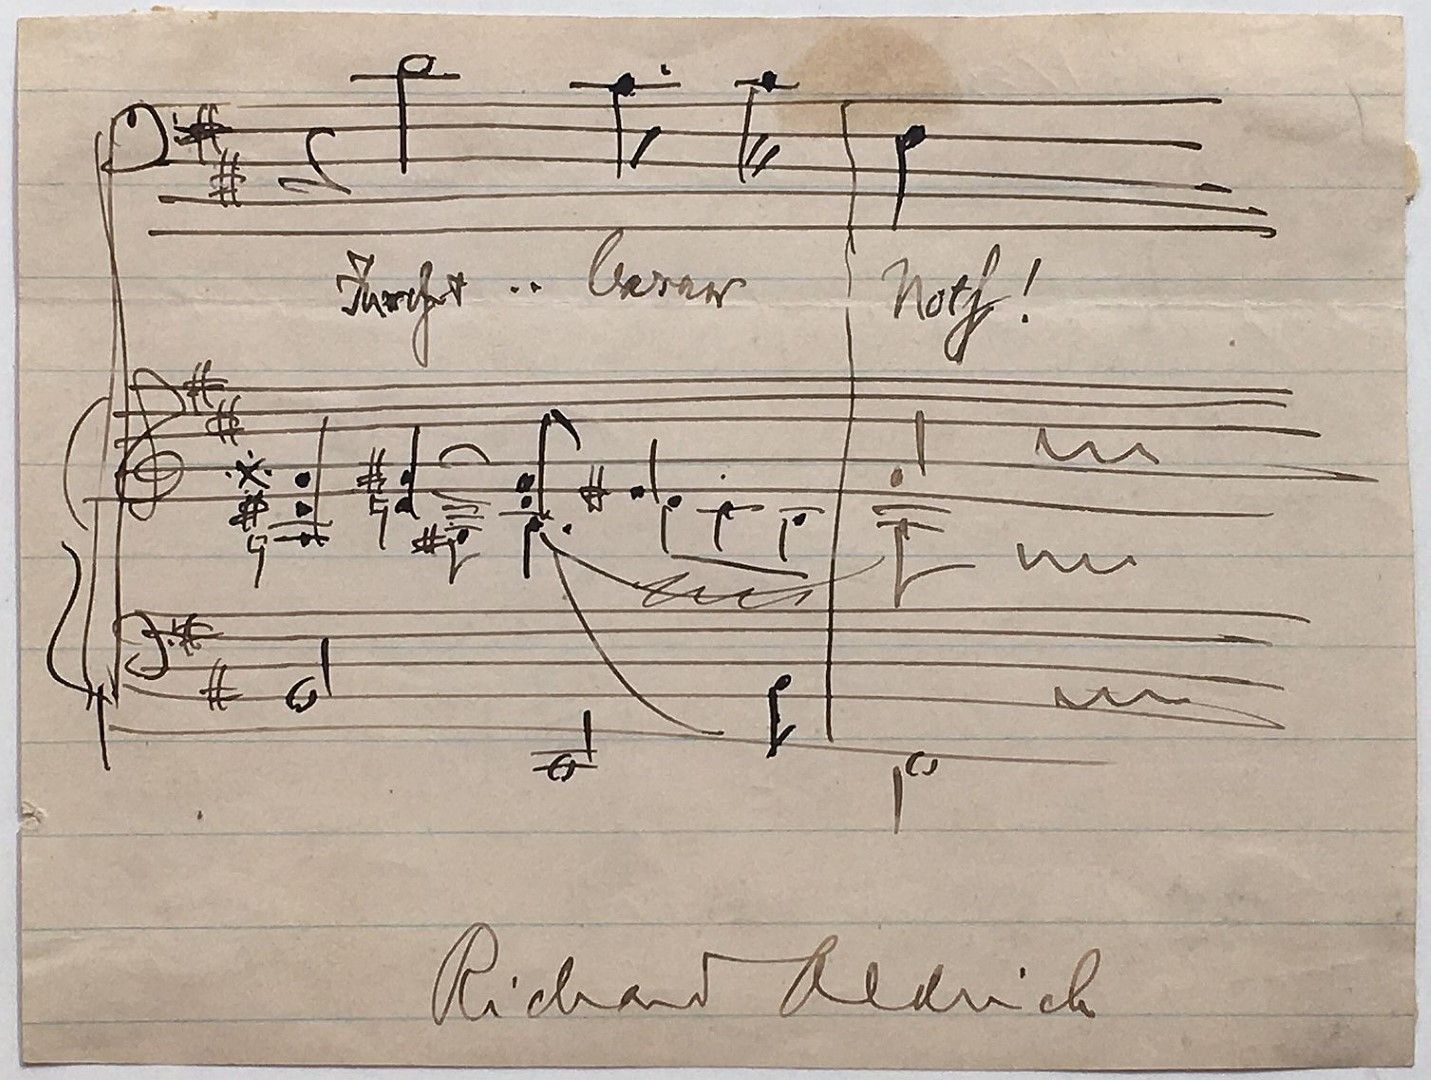 Furcht .. barer Noth!
Richard Aldrich